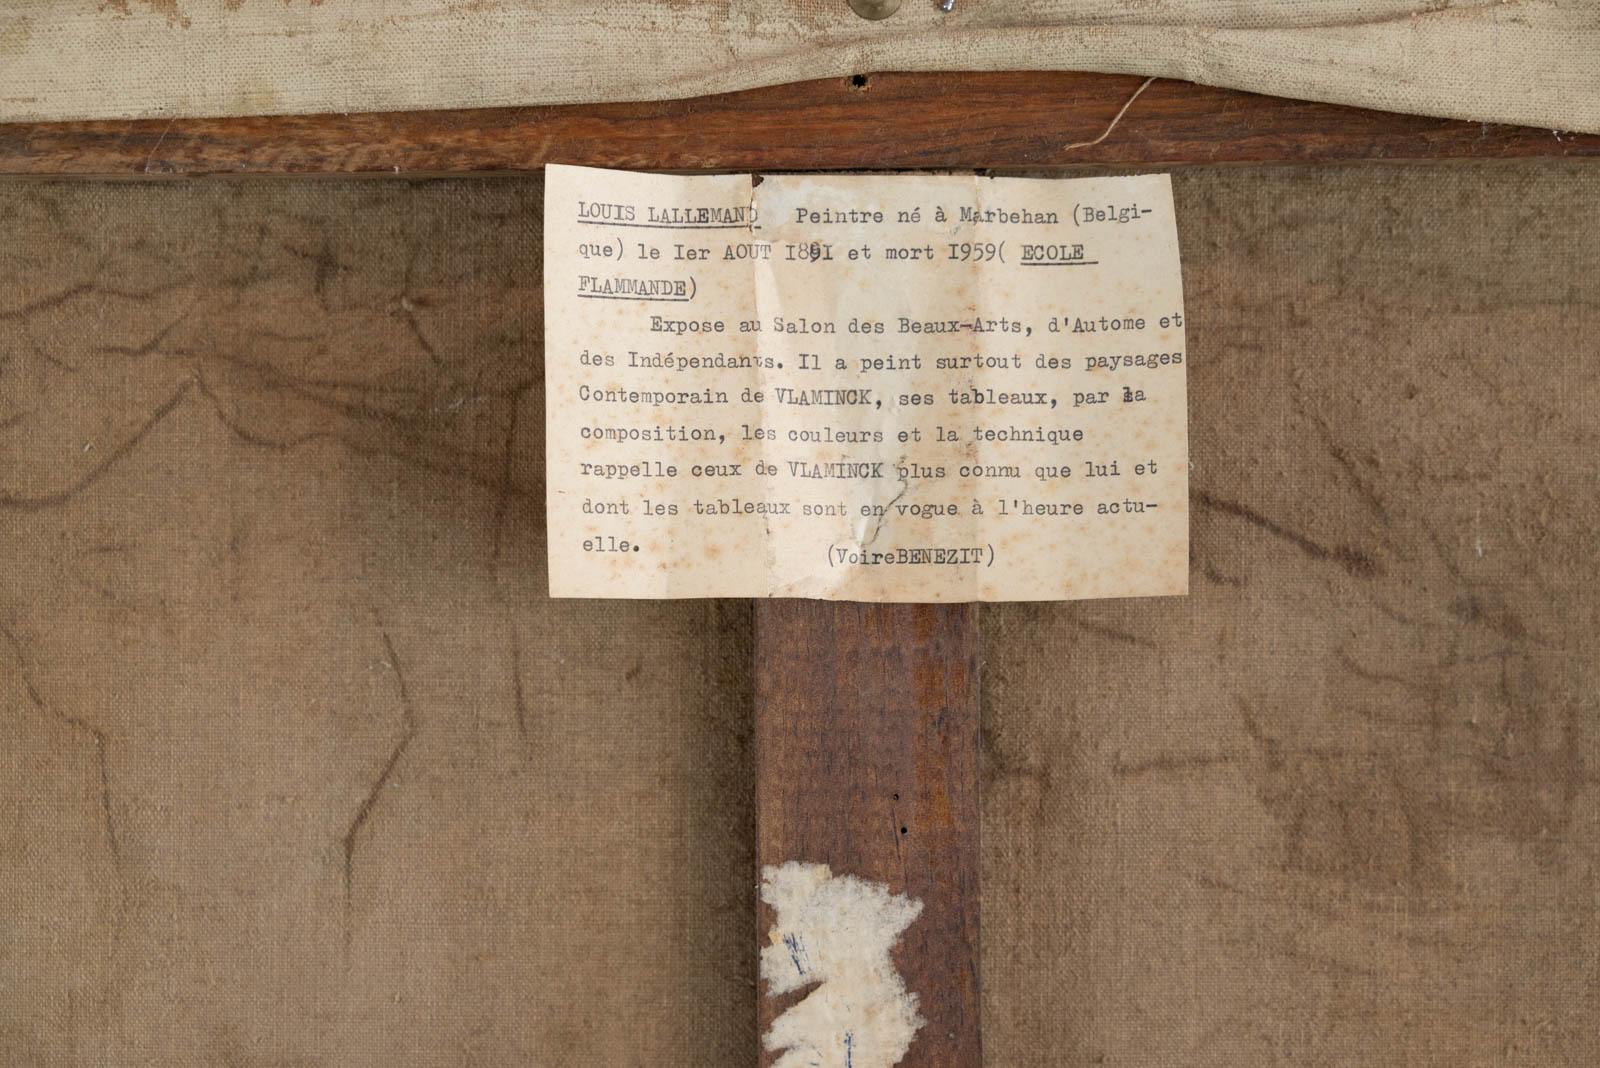 LOUIS LALLEMAND Peintre né à Marbehan (Belgi-
que) le Ier AOUT I891 et mort I959( ECOLE
FLAMMANDE)
Expose au Salon des Beaux-Arts, d'Autome et
des Indépendants. Il a peint surtout des paysages
Contemporain de VLAMINCK, ses tableaux, par la
composition, les couleurs et la technique
rappelle ceux de VLAMINCK plus connu que lui et
dont les tableaux sont en vogue à l'heure actu-
elle.
(VoireBENEZIT)